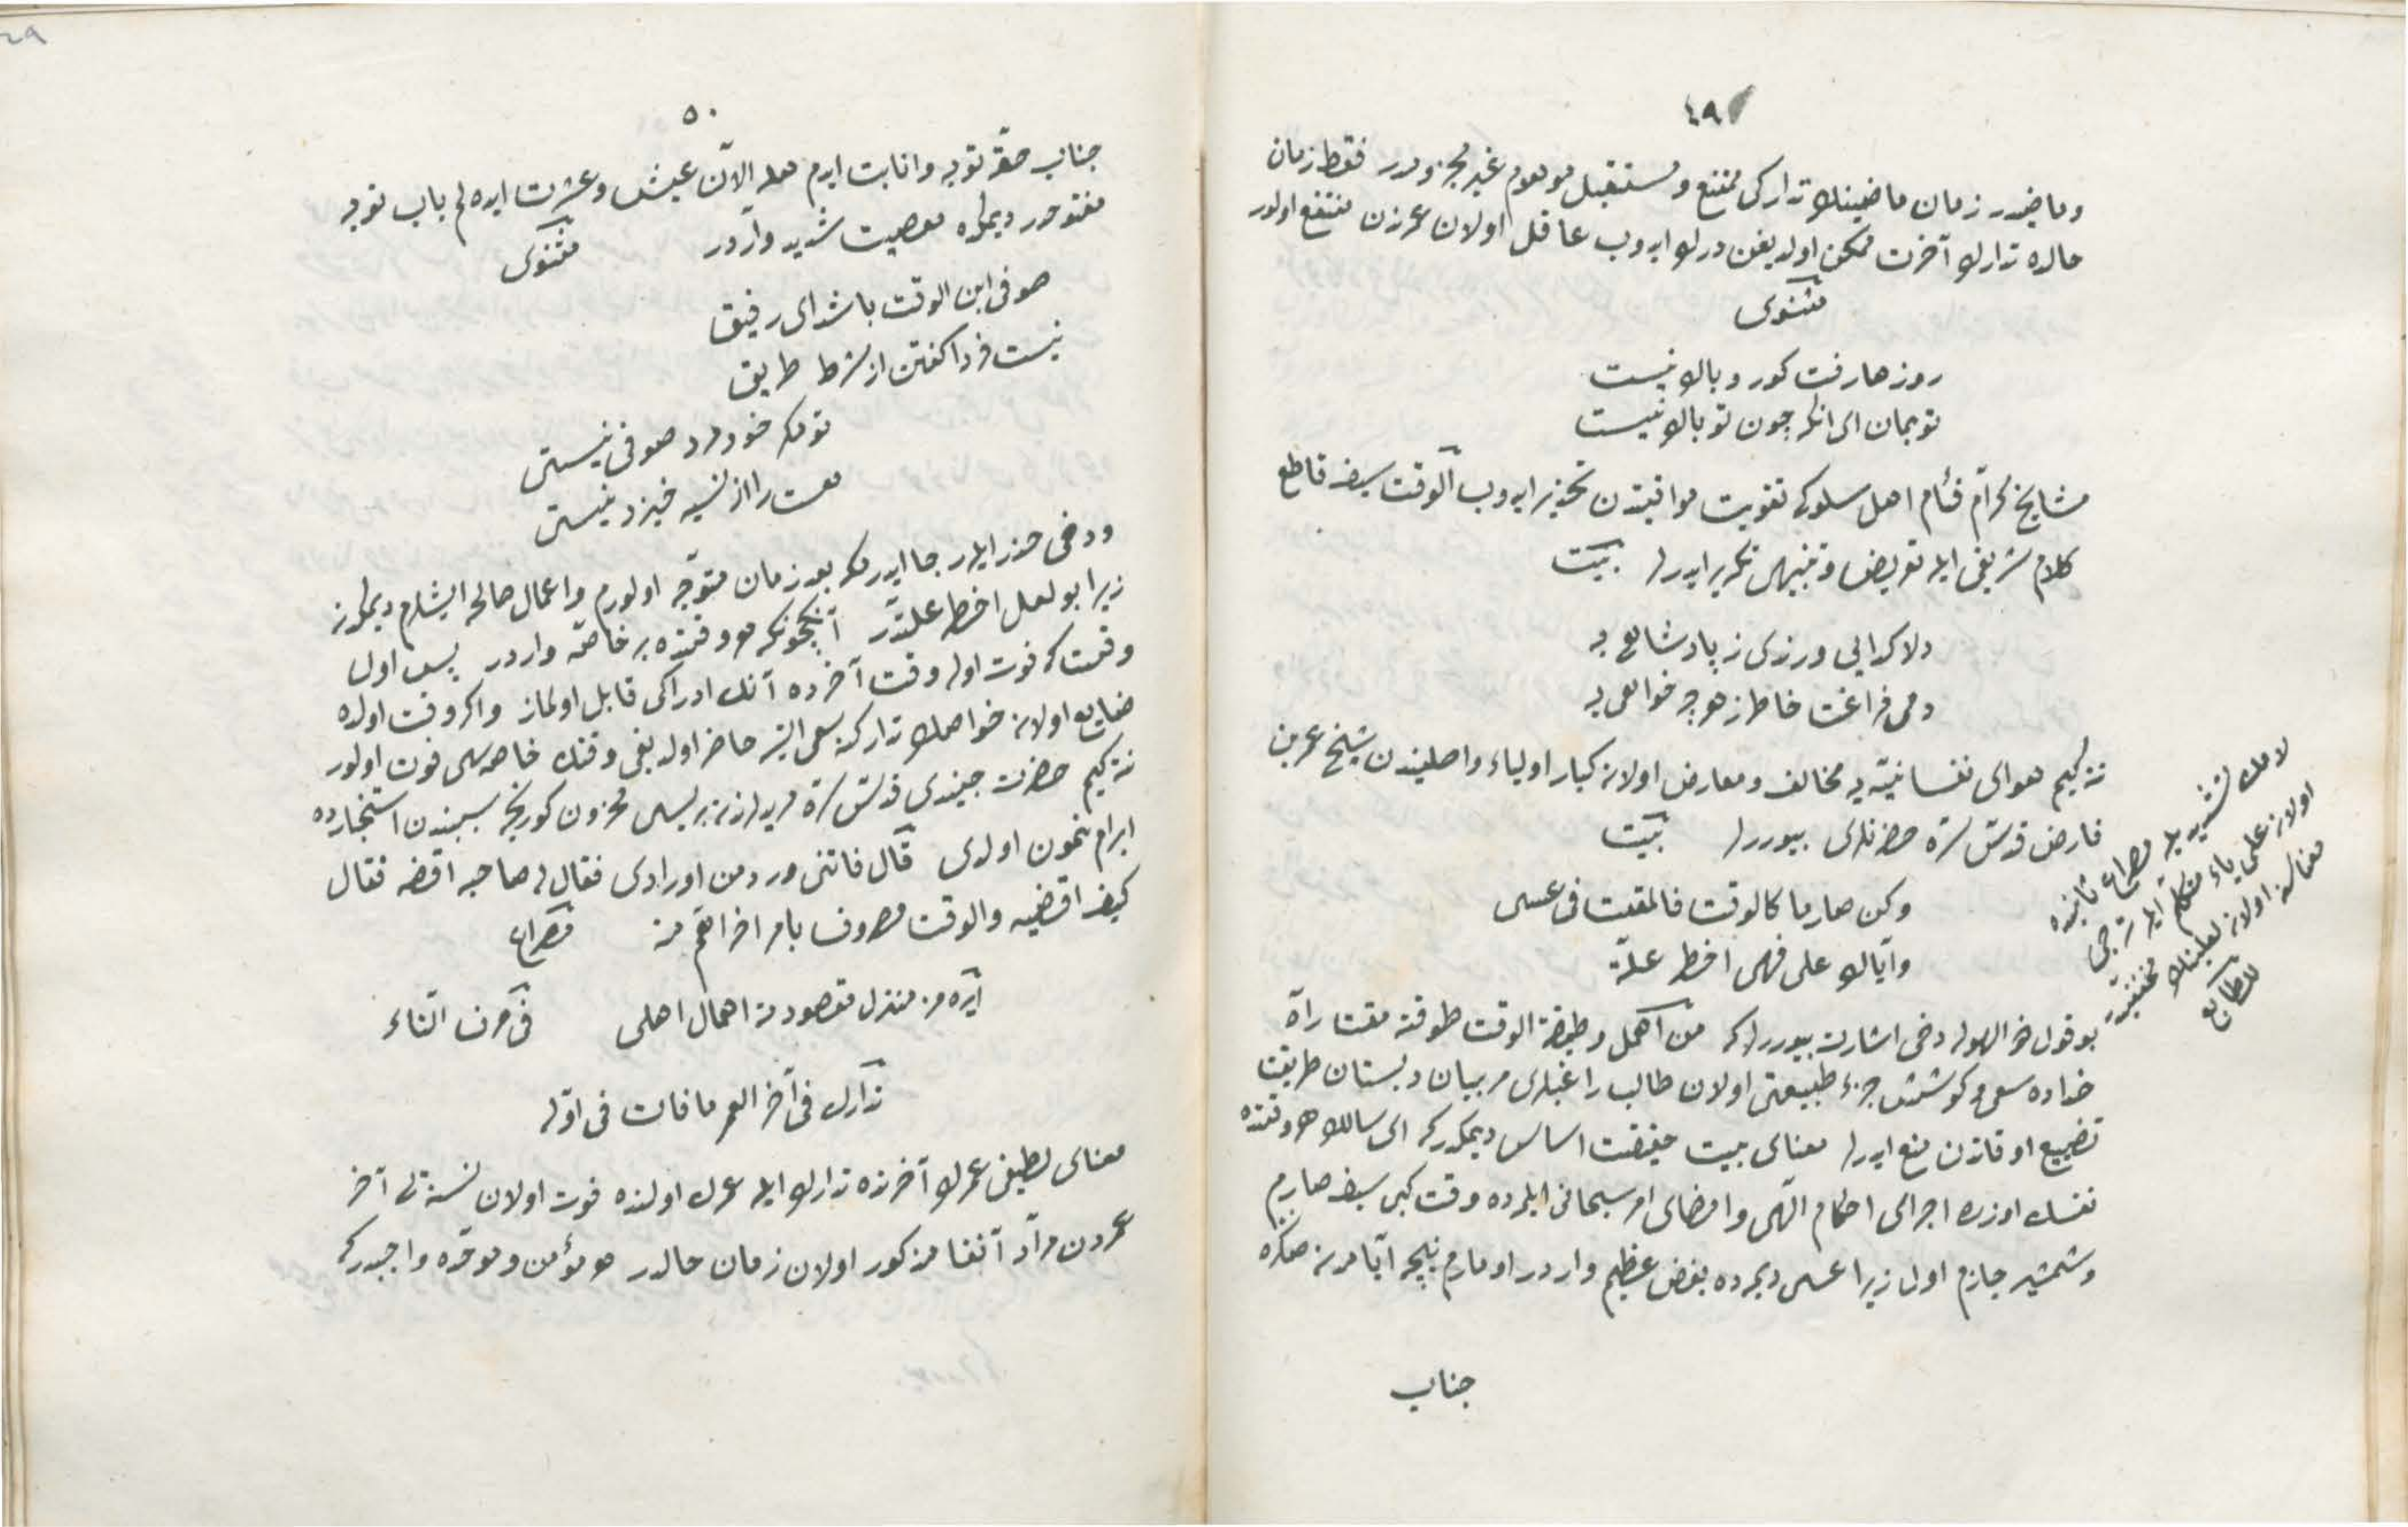 ٤٩
وماضیدر زمان ماضینك تداركی ممتنع ومستقبل موهوم غیر مجزومدر فقط زمان
حالده تدارك آخرت ممكن اولدیغن درك ایدوب عاقل اولان عمرندن منتفع اولور
مثنوی
روزها رفت كو رو باك نیست
تو بمان ای انكه چون تو پاك نیست
مشایخ كرام فئام اهل سلوكی تفویت مواقیتدن تحذیر ایدوب الوقت سیف قاطع
كلام شریفی ایله تعریض وتنبیهی تكریر ایدرلر بیت
دلا كدایی ورندی ز پادشاهی به
دمی فراغت خاطر ز هرچه خواهی به
نته كیم هوای نفسانیّه یه مخالف ومعارض اولان كبار اولیاء واصلیندن شیخ عمر بن
فارض قدّس سرّه حضرتلری بیوررلر بیت
وكن صارما كالوقت فالمقت فی عسی
وایّاك علی فهی اخطر علّة
لامك تشدیدیله مصراع ثانیده
اولان علی یاء متكلم ایله ترجی
معناسنه اولان لعلینك مخففیدر
للطابع
بو قول دخی اشارت بیوررلركه من اهمل وظیفة الوقت طوقته مقت راه
خداده سعی وكوشش جزء طبیعتی اولان طالب راغبلری مربیان دبستان طریقت
تضییع اوقاتدن منع ایدرلر معنای بیت حقیقت اساس دیمكدركه ای سالك هر وقتده
نفسك اوزره اجرای احكام الهی وامضای امر سبحانی ایلمرده وقت كبی سیف صارم
وشمشیر جازم اول زیرا عسی دیمرده بغض عظیم واردر اومارم نیچه ایامدن صكره
جناب
٥٠
جناب حقّه توبه وانابت ایدرم هله الآن عیش وعشرت ایده لم باب توبه
مفتوحدر دیمكده معصیت شدید واردر مثنوی
صوفی ابن الوقت باشد ای رفیق
نیست فردا كفتن از شرط طریق
تو مكر خود مرد صوفی نیستی
هست را از نسیه خیزد نیستی
ودخی حذر ایله رجا ایدرمكه بعد زمان متوجّه اولورم واعمال صالحه ایشلرم دیمكدن
زیرا بو لعل اخطر علّتدر آنكچونكه هر وقتده بر خاصّه واردر پس اول
وقت كه فوت اوله وقت آخرده آنك ادراكی قابل اولماز واكر وقت اولده
ضایع اولان خواصك تداركنه سعی ایتسه حاضر اولدیغی وقتك خاصه سی فوت اولور
نته كیم حضرت جنیدی قدّس سرّه مریدلرندن بریسی محزون كوریجك سببندن استخبارده
ابرام نمون اولدی قال فاتنی ورد من اورادی فقال له صاحبه اقضه فقال
كیف اقضیه والوقت مصروف بامر اخر اهمّ منه مصراع
ایره مز منزل مقصودنه اهمال اهلی فی حرف التاء
تدارك فی آخر العمر ما فات فی اوّله
معنای لطیفی عمرك آخرنده تدارك ایله عمرك اولنده فوت اولان نسنه لری آخر
عمردن مراد آنفا مذكور اولان زمان حالدر هر مؤمن وموحّده واجبدركه